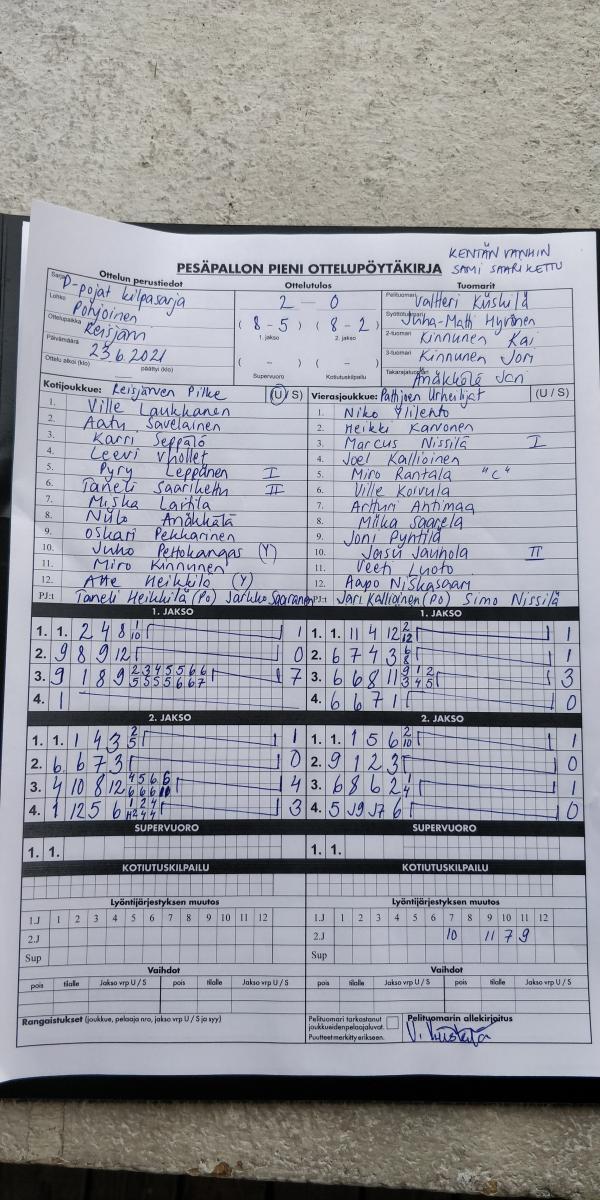 KENTÄN VANHIN
SAMI SAARIKETTU
PESÄPALLON PIENI OTTELUPÖYTÄKIRJA
Ottelun perustiedot
Ottelutulos
Tuomarit
Sarja D-pojat kilpasarja
Lohko Pohjoinen
Ottelupaikka Reisjärvi
Päivämäärä 23.6.2021
Ottelu alkoi (klo) päättyi (klo)
2 - 0
(8-5) (8-2)
1. jakso 2. jakso
( - ) ( - )
Supervuoro Kotiutuskilpailu
Pelituomari Valtteri Kiiskilä
Syöttötuomari Juha-Matti Hyvönen
2-tuomari Kinnunen Kai
3-tuomari Kinnunen Joni
Takarajatuomari Änäkkälä Jari
Kotijoukkue: Reisjärven Pilke (U/S)
1. Ville Laukkanen
2. Aatu Savelainen
3. Karri Seppälö
4. Leevi
5. Pyry Leppänen I
6. Taneli Saarikettu II
7. Miska Laitila
8. Niilo Änäkkälä
9. Oskari Pekkarinen
10. Juho Pettokangas (Y)
11. Miro Kinnunen
12. Atte Heikkilö (Y)
PJ:t Taneli Heikkilä (PO) Jarkko Saaranen
Vierasjoukkue: Pattijoen Urheilijat (U/S)
1. Niko Ylilehto
2. Heikki Karvonen
3. Marcus Nissilä I
4. Joel Kallioinen
5. Miro Rantala "C"
6. Ville Koivula
7. Artturi Ahtimaa
8. Miika Saarela
9. Joni Pyhtilä
10. Jasu Jauhola II
11. Veeti Luoto
12. Aapo Niskasaari
PJ:t Jari Kallioinen (PO) Simo Nissilä
1. JAKSO
1. 1. 2 4 8 1 10 1
2. 9 8 9 12 0
3. 9 1 8 9 2 3 4 5 5 6 6 5 5 5 5 6 6 7 7
4. 1
1. JAKSO
1. 1. 11 4 12 2 12 1
2. 6 7 4 3 6 8 1
3. 6 6 8 11 9 1 2 3 4 5 3
4. 6 6 7 1 0
2. JAKSO
1. 1. 1 4 3 2 5 1
2. 6 6 7 3 0
3. 4 10 8 12 4 5 6 6 6 6 6 10 4
4. 1 12 5 6 1 2 4 4 4 3
2. JAKSO
1. 1. 1 5 6 2 10 1
2. 9 1 2 3 0
3. 6 8 6 2 1 4 1
4. 5 6 0
SUPERVUORO
1. 1.
SUPERVUORO
1. 1.
KOTIUTUSKILPAILU
KOTIUTUSKILPAILU
Lyöntijärjestyksen muutos
1.J 1 2 3 4 5 6 7 8 9 10 11 12
2.J
Sup
Lyöntijärjestyksen muutos
1.J 1 2 3 4 5 6 7 8 9 10 11 12
2.J 10 11 7 9
Sup
Vaihdot
pois tilalle Jakso vrp U / S pois tilalle Jakso vrp U / S
Vaihdot
pois tilalle Jakso vrp U / S pois tilalle Jakso vrp U / S
Rangaistukset (joukkue, pelaaja nro, jakso vrp U / S ja syy)
Pelituomari tarkastanut
joukkueidenpelaajaluvat.
Puutteet merkitty erikseen.
Pelituomarin allekirjoitus
V. Kiiskilä